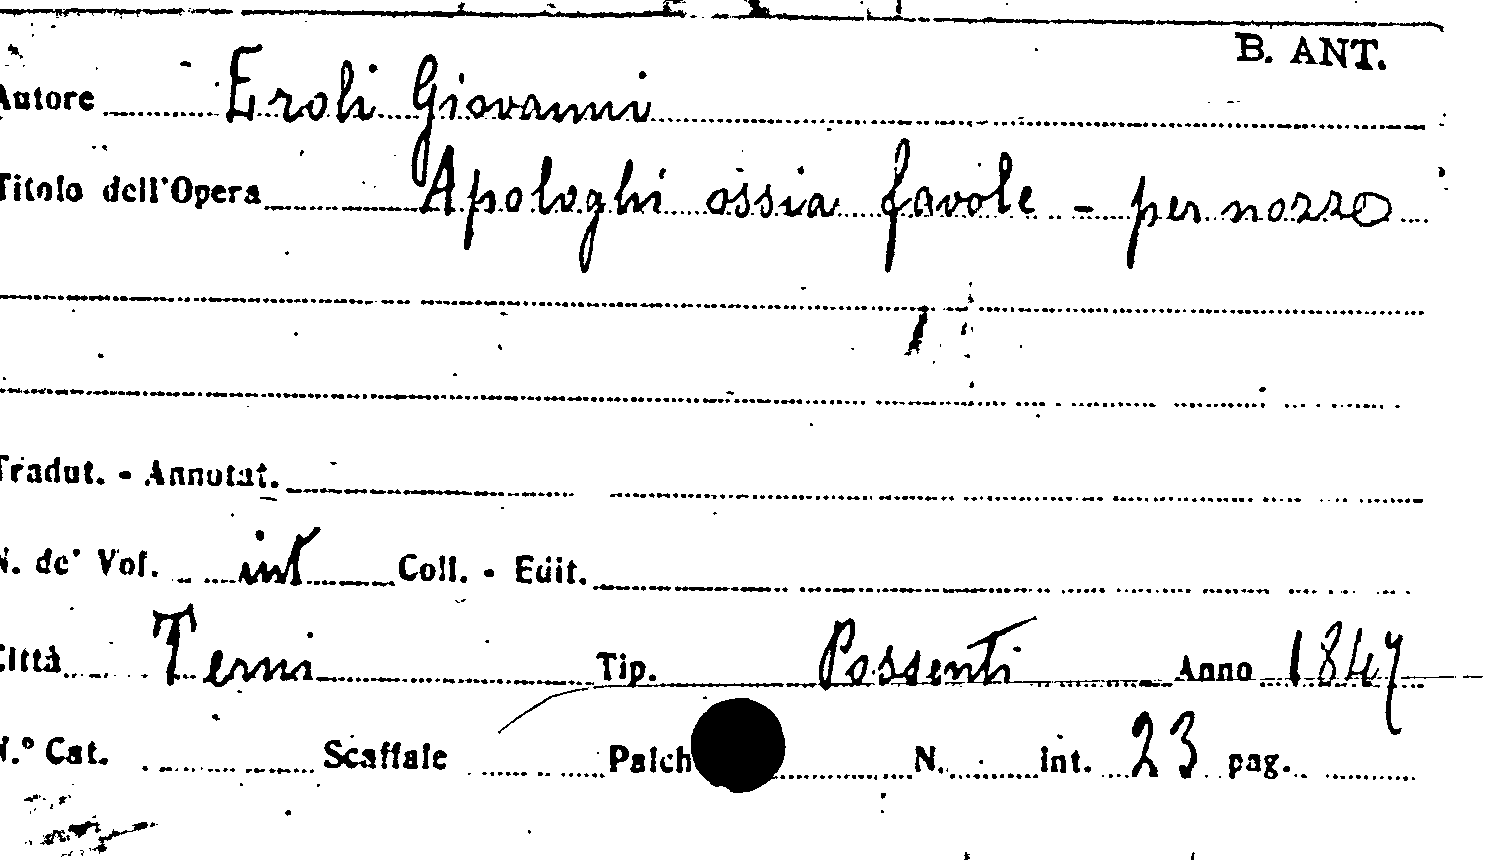 B. ANT.
Autore Eroli Giovanni
Titolo dell'Opera Apologhi ossia favole - per nozze
Tradut. - Annotat.
N. de' Vol. int Coll. - Edit.
Città Terni Tip. Possenti Anno 1847
N.° Cat. Scaffale Palch N. int. 23 pag.